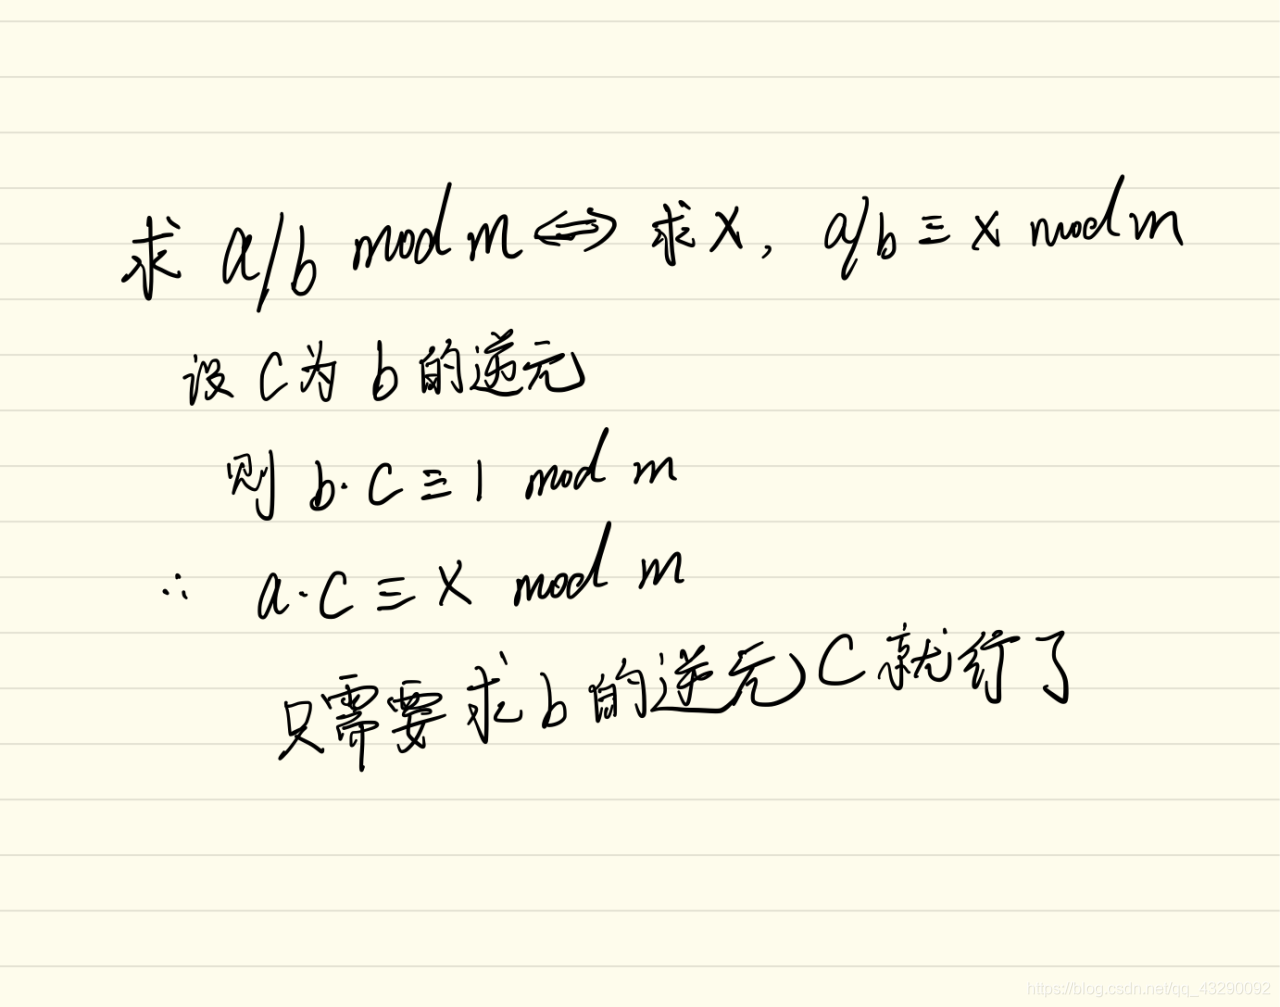 求 a/b mod m ⇔ 求x, a/b ≡ x mod m
设 c 为 b 的逆元
则 b·c ≡ 1 mod m
∴ a·c ≡ x mod m
只需要求b的逆元c就行了
https://blog.csdn.net/qq_43290092